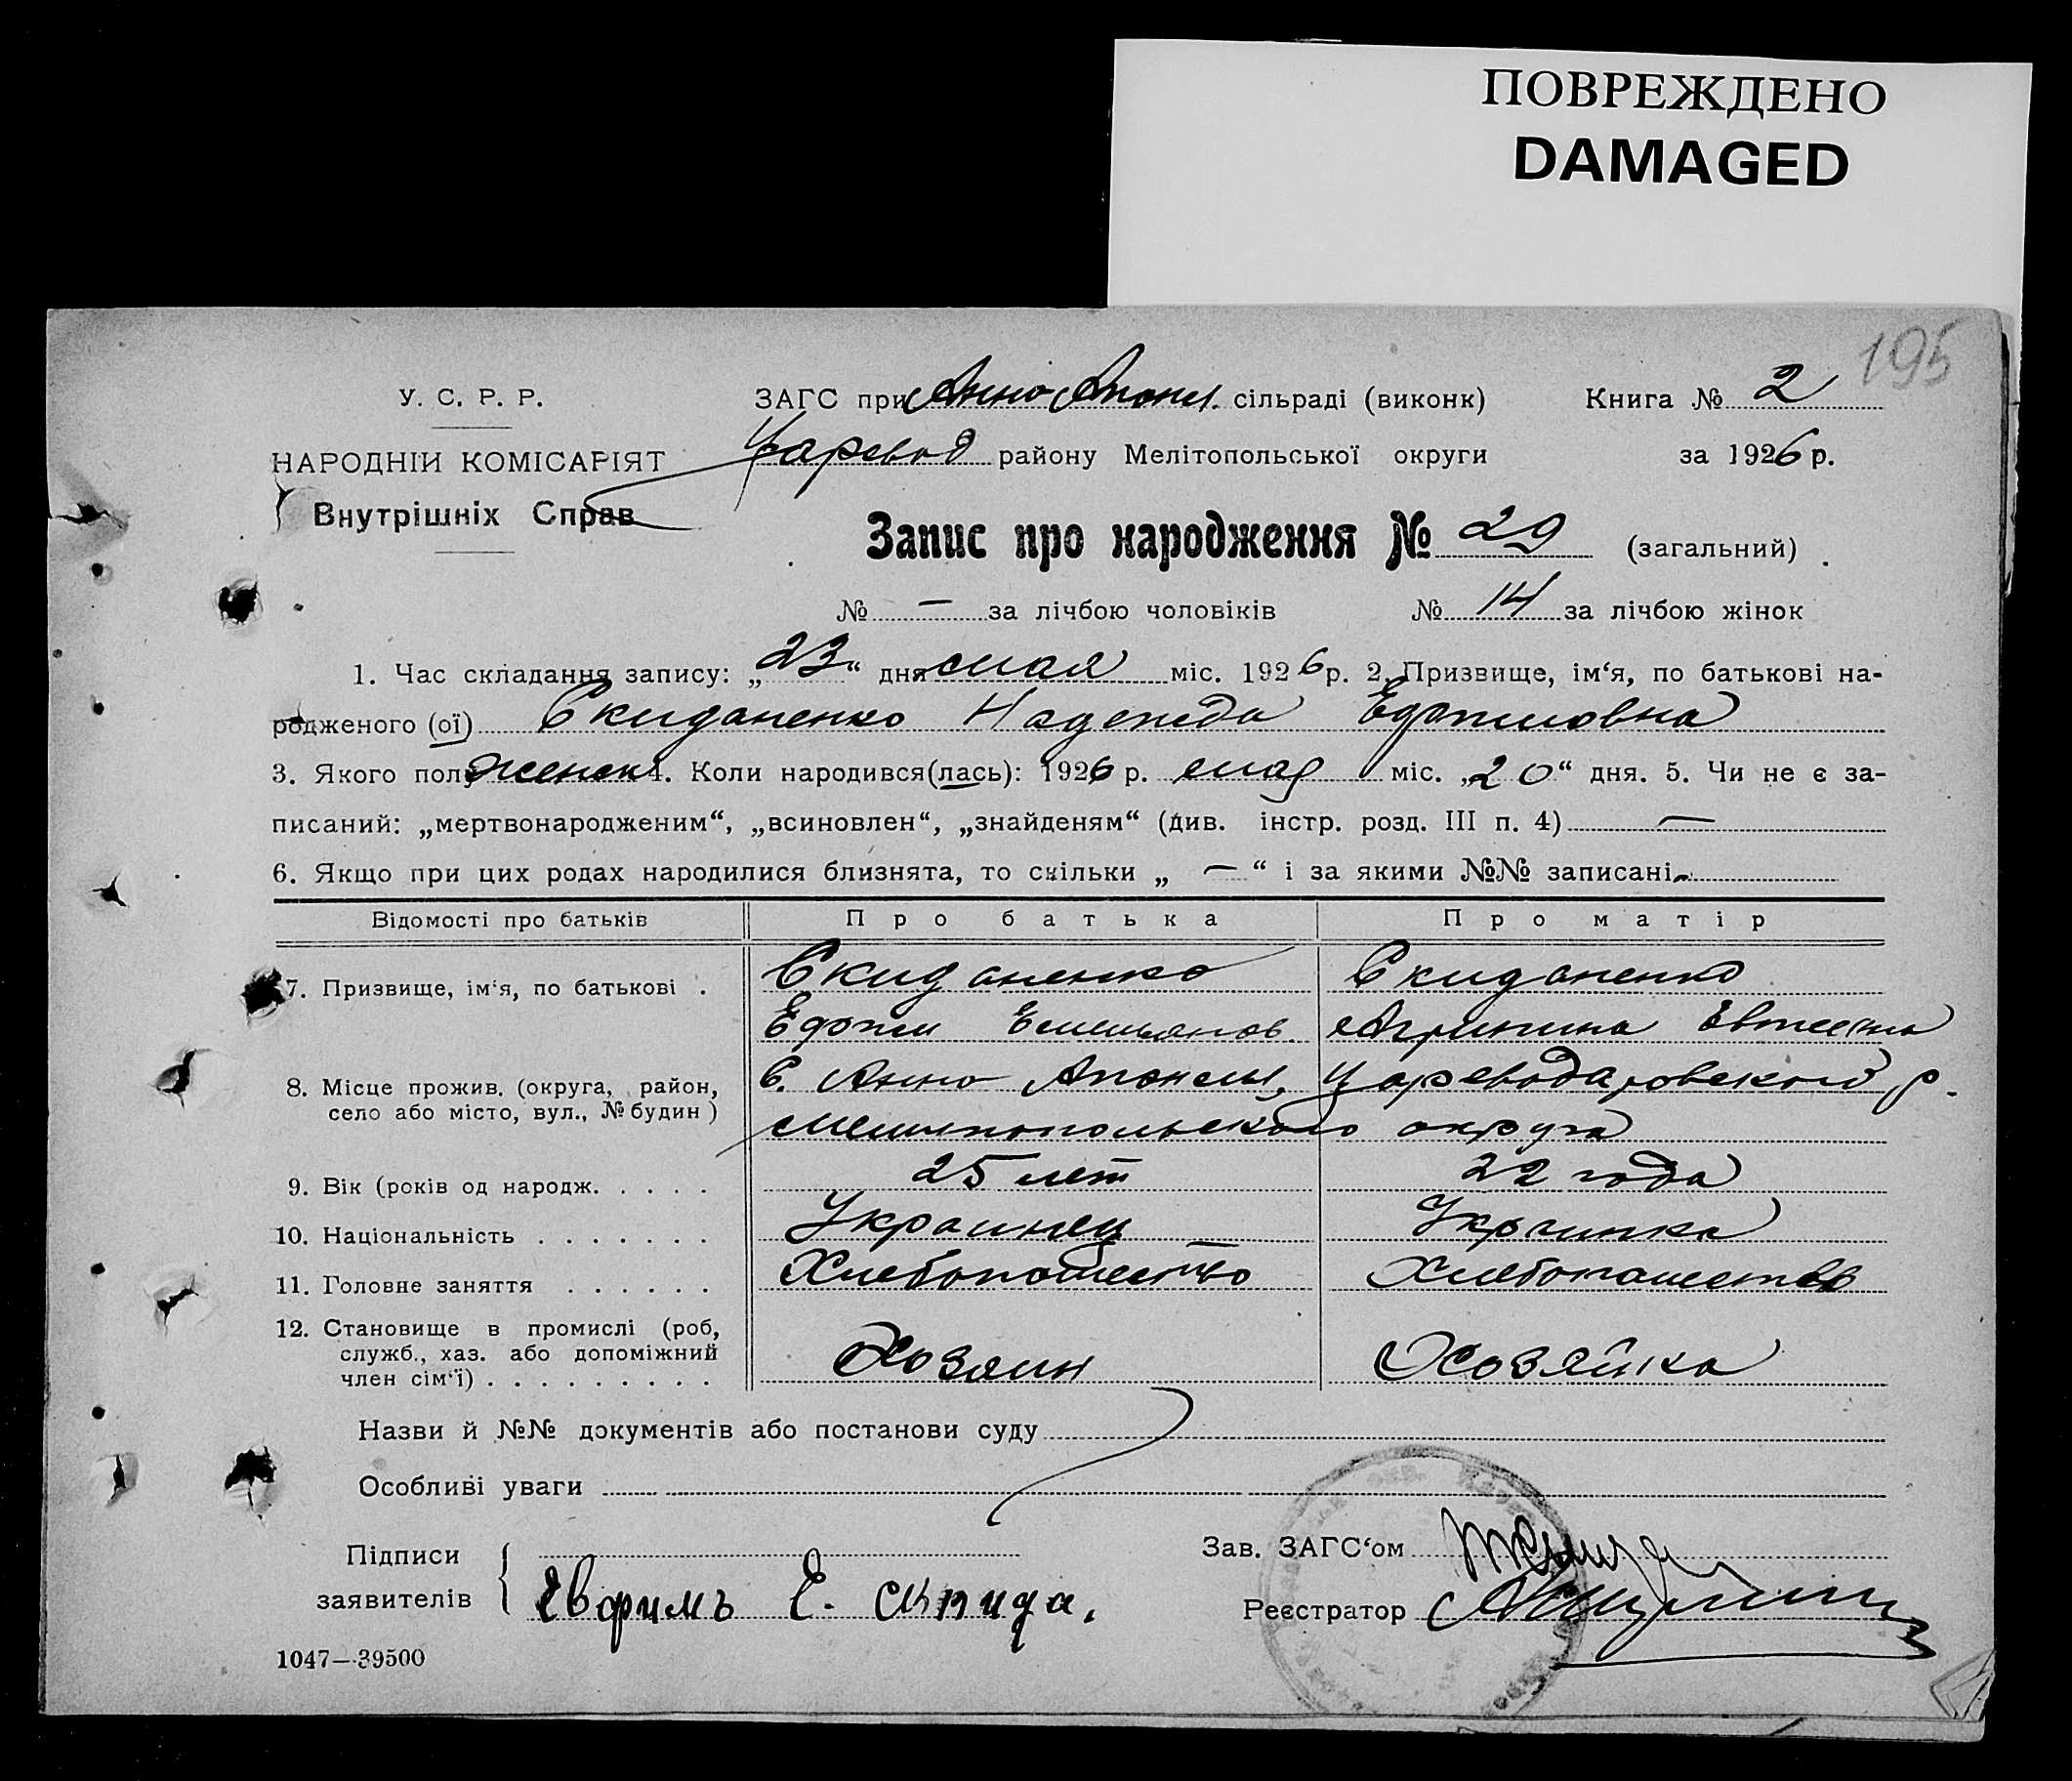 ПОВРЕЖДЕНО
DAMAGED
195
У. С. Р. Р.
НАРОДНІЙ КОМІСАРІЯТ
Внутрішніх Справ
ЗАГС при Анно Апонл. сільраді (виконк)
Книга № 2
Царевод району Мелітопольської округи
за 1926 р.
Запис про народження № 29 (загальний)
№ — за лічбою чоловіків № 14 за лічбою жінок
1. Час складання запису: „23“ дня мая міс. 1926 р. 2. Призвище, ім‘я, по батькові на-
родженого (ої) Скиданенко Надежда
3. Якого полу женск 4. Коли народився(лась): 1926 р. мая міс. „20“ дня. 5. Чи не є за-
писаний: „мертвонародженим“, „всиновлен“, „знайденям“ (див. інстр. розд. III п. 4) —
6. Якщо при цих родах народилися близнята, то скільки „ — “ і за якими №№ записані -
Відомості про батьків Про батька Про матір
7. Призвище, ім‘я, по батькові . Скиданенко Скиданенко
Емельянов.
8. Місце прожив. (округа, район, С. Анно Апонлы, Цареводаровского р.
село або місто, вул., № будин) Мелитопольского округа
9. Вік (років од народж. . . . . 25 лет 22 года
10. Національність . . . . . . . Украинец Украинка
11. Головне заняття . . . . . . Хлебопашество Хлебопашество
12. Становище в промислі (роб,
служб., хаз. або допоміжний
член сім‘ї) . . . . . . . . . Хозяин Хозяйка
Назви й №№ документів або постанови суду
Особливі уваги
Підписи
заявителів
Евфимъ Е. скида.
Зав. ЗАГС‘ом
Реєстратор
1047—39500